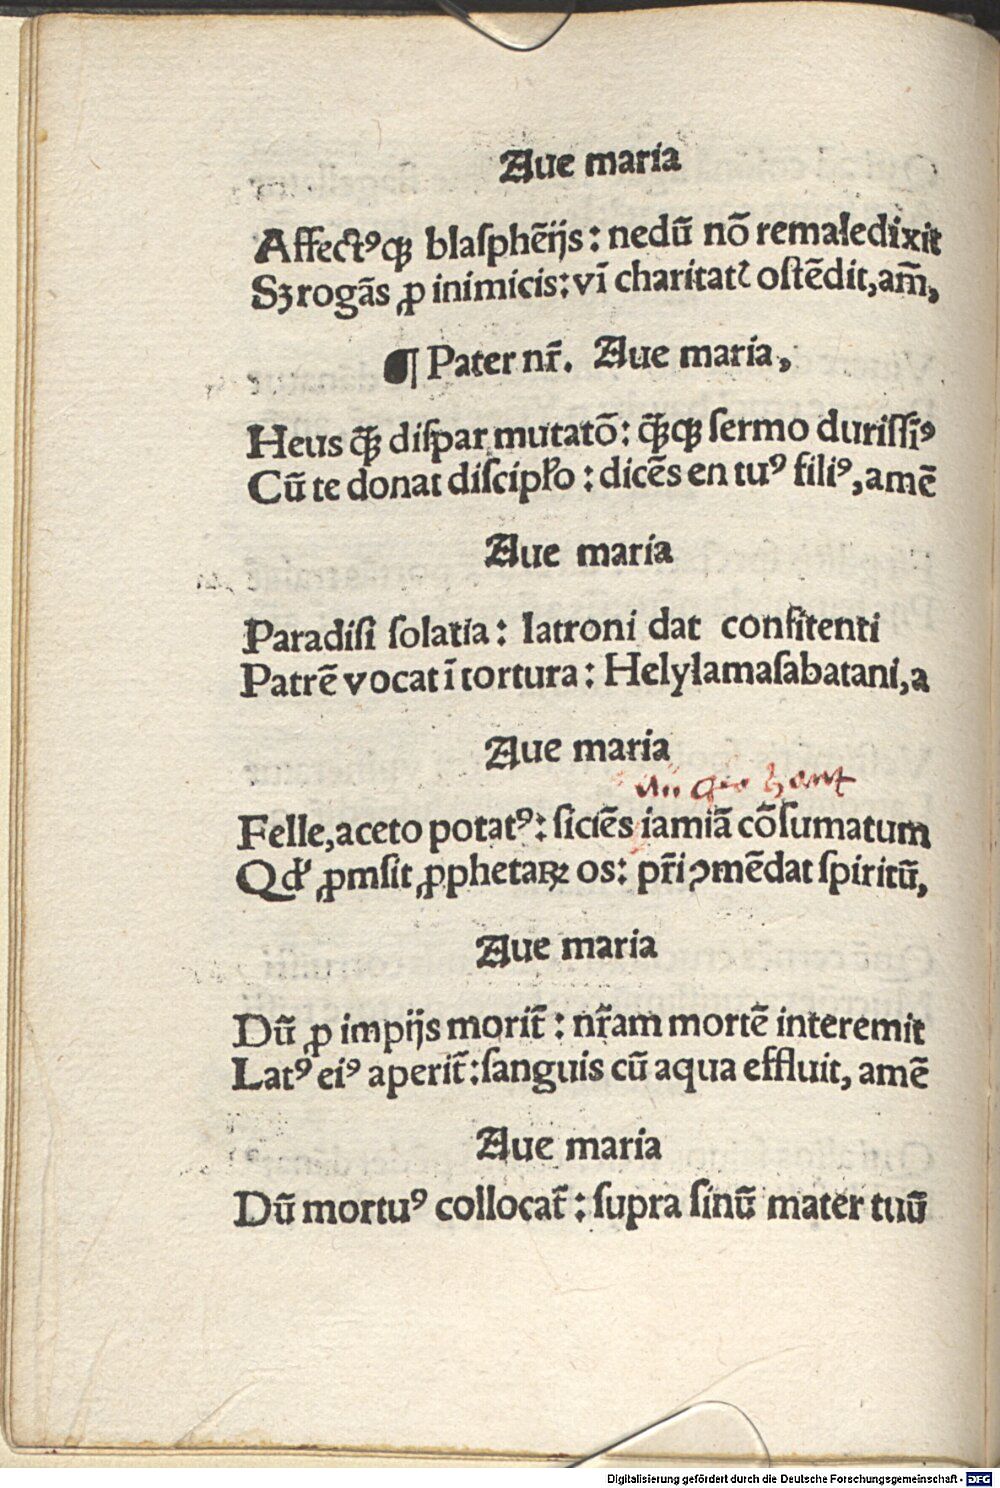 Aue maria
Affectꝰqꝫ blasphēijs: nedū nō remaledixit
Sꝫ rogās ꝓ inimicis: vī charitatꝭ ostēdit, am̄,
¶ Pater nr̄. Aue maria,
Heus qꝫ̄ dispar mutatō: qꝫ̄qꝫ sermo durissīꝰ
Cū te donat discipł'o: dicēs en tuꝰ filiꝰ, amē
Aue maria
Paradisi solatia: latroni dat confitenti
Patrē vocat ī tortura: Helylamasabatani, a
Aue maria
Felle, aceto potatꝰ: siciēs iamiā cōsumatum
Qd' ꝓmsit ꝓphetaꝝ os: pr̄i ꝯmēdat spiritū,
Aue maria
Dū ꝓ impijs morit̄: nr̄am mortē interemit
Latꝰ eiꝰ aperit̄: sanguis cū aqua effluit, amē
Aue maria
Dū mortuꝰ collocat̄: supra sinū mater tuū
Digitalisierung gefördert durch die Deutsche Forschungsgemeinschaft - DFG